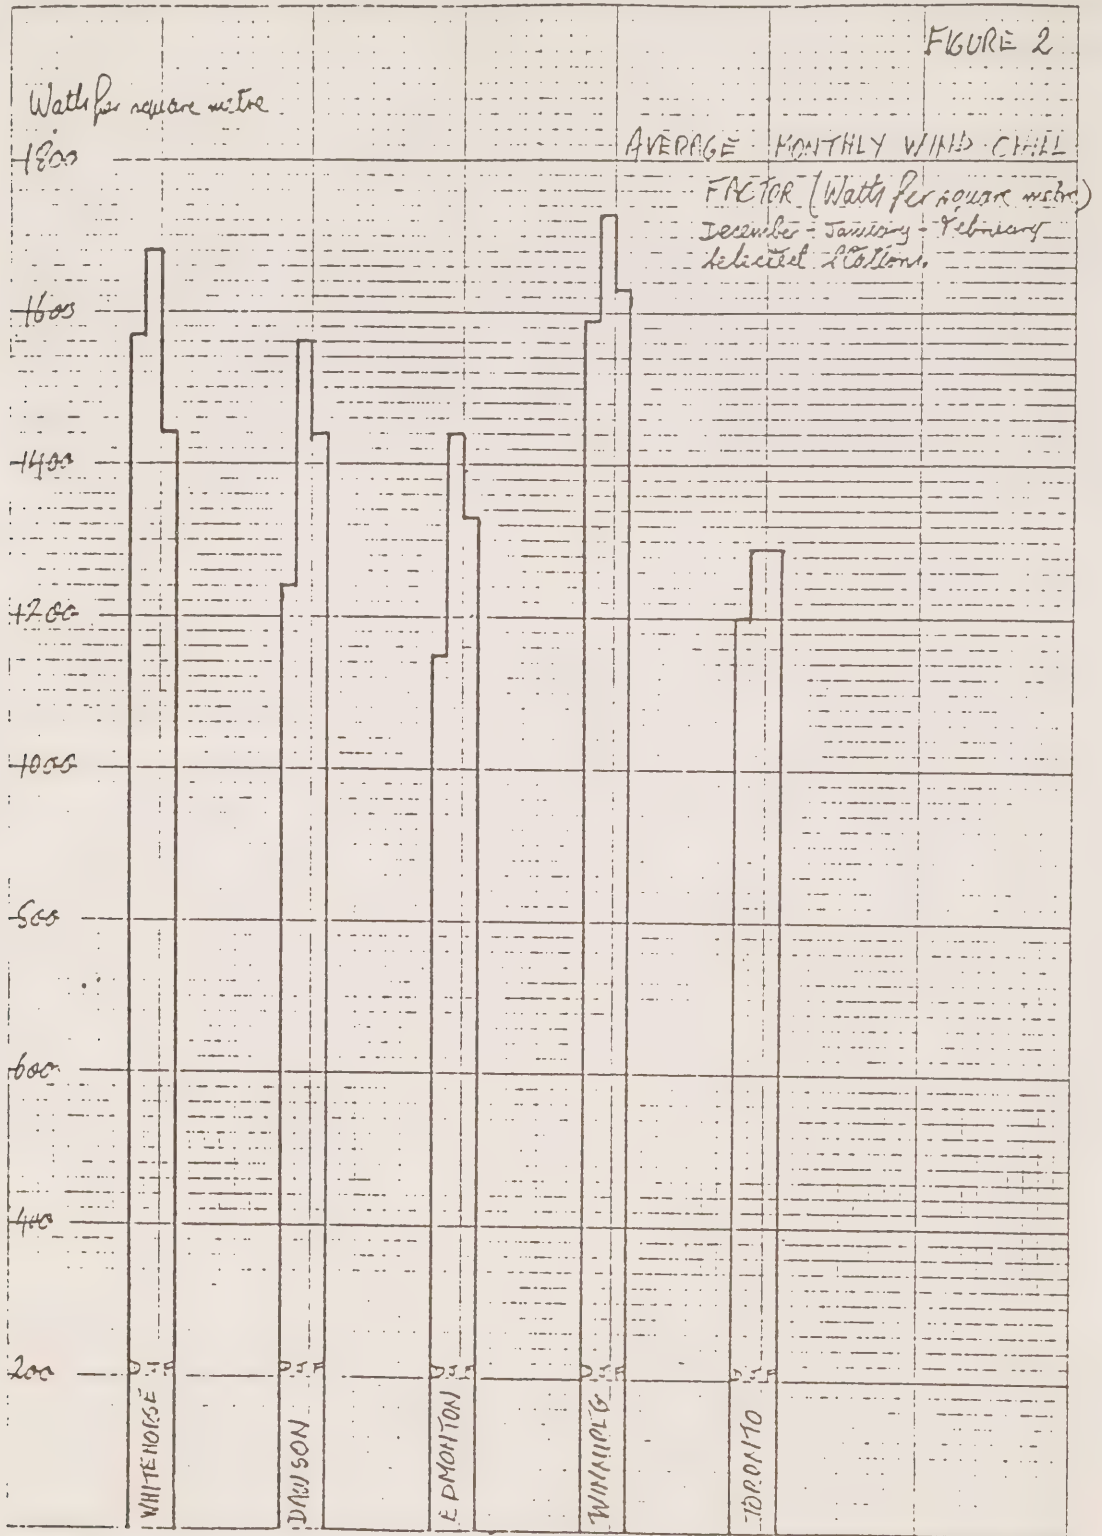 FIGURE 2
Watts per square metre
1800
AVERAGE MONTHLY WIND CHILL
FACTOR (Watts per square metre)
December - January - February
Selected Stations.
1600
1400
1200
1000
800
600
400
200
D J F
D J F
D J F
D J F
D J F
WHITEHORSE
DAWSON
EDMONTON
WINNIPEG
TORONTO